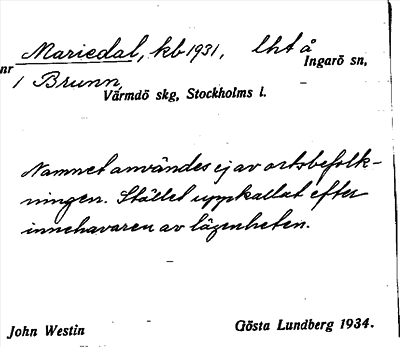 Mariedal, kb 1931, lht å
Ingarö sn,
nr 1 Brunn,
Värmdö skg, Stockholms l.
Namnet användes ej av ortsbefolk-
ningen. Stället uppkallat efter
innehavaren av lägenheten.
John Westin
Gösta Lundberg 1934.